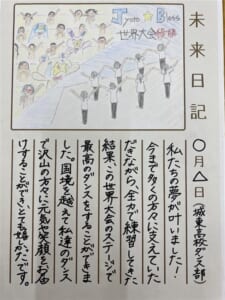 未来日記
Jyoto☆Boss
世界大会優勝
〇月△日（城東高校ダンス部）
私たちの夢が叶いました！
今まで多くの方々に支えていた
だきながら、全力で練習してきた
結果、この世界大会のステージで
最高のダンスをすることができま
した。国境を越えて私達のダンス
で沢山の方々に元気や笑顔をお届
けすることができ、とても嬉しかったです。